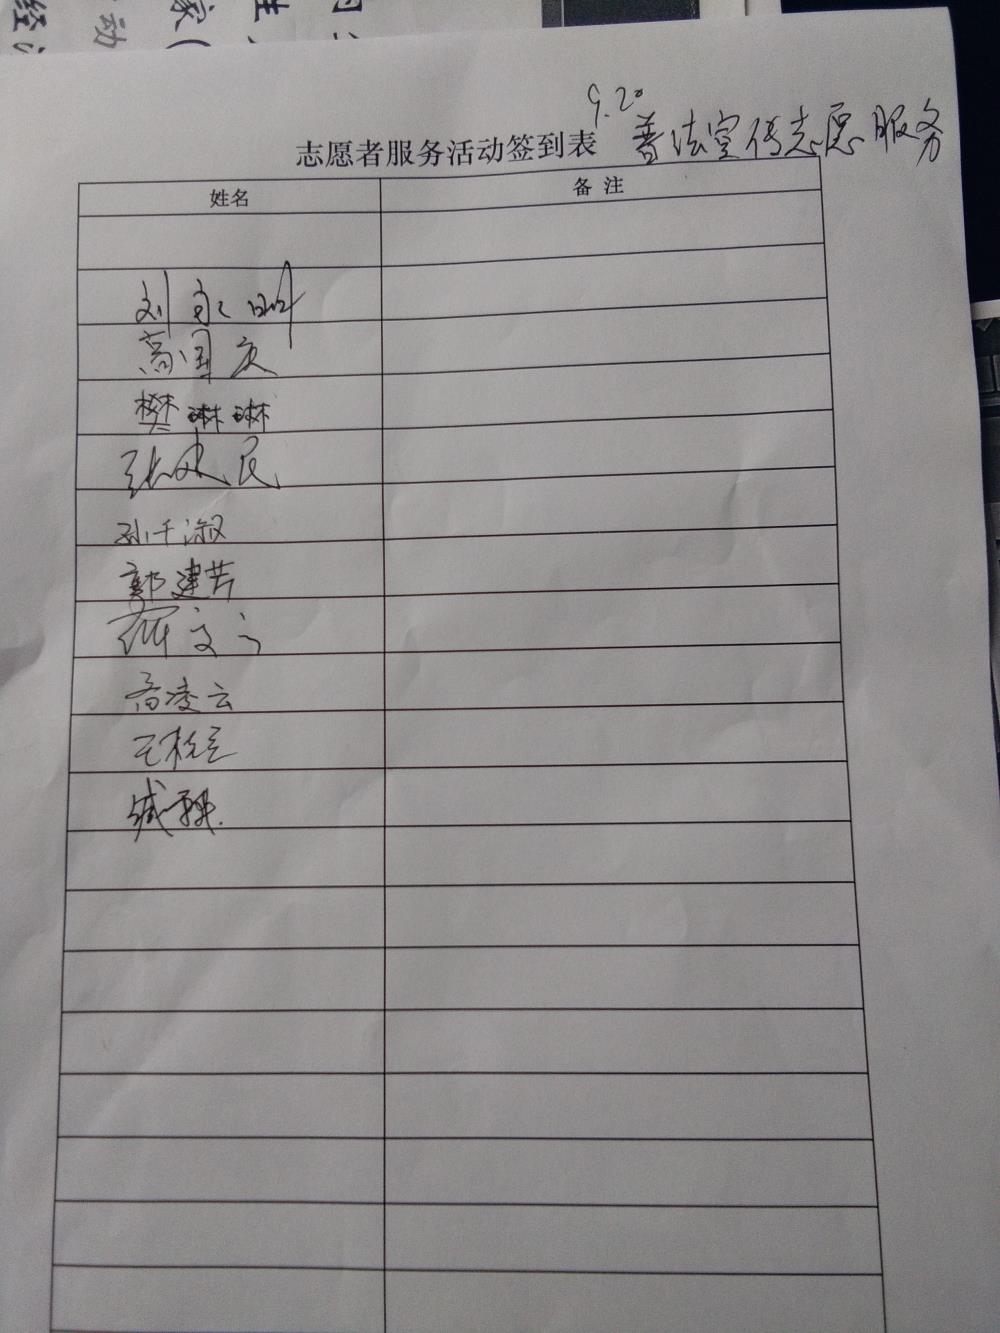 9.20
志愿者服务活动签到表 普法宣传志愿服务
姓名 备注
刘永明
高国庆
樊琳琳
张建民
孙千淑
郭建芳
高凌云